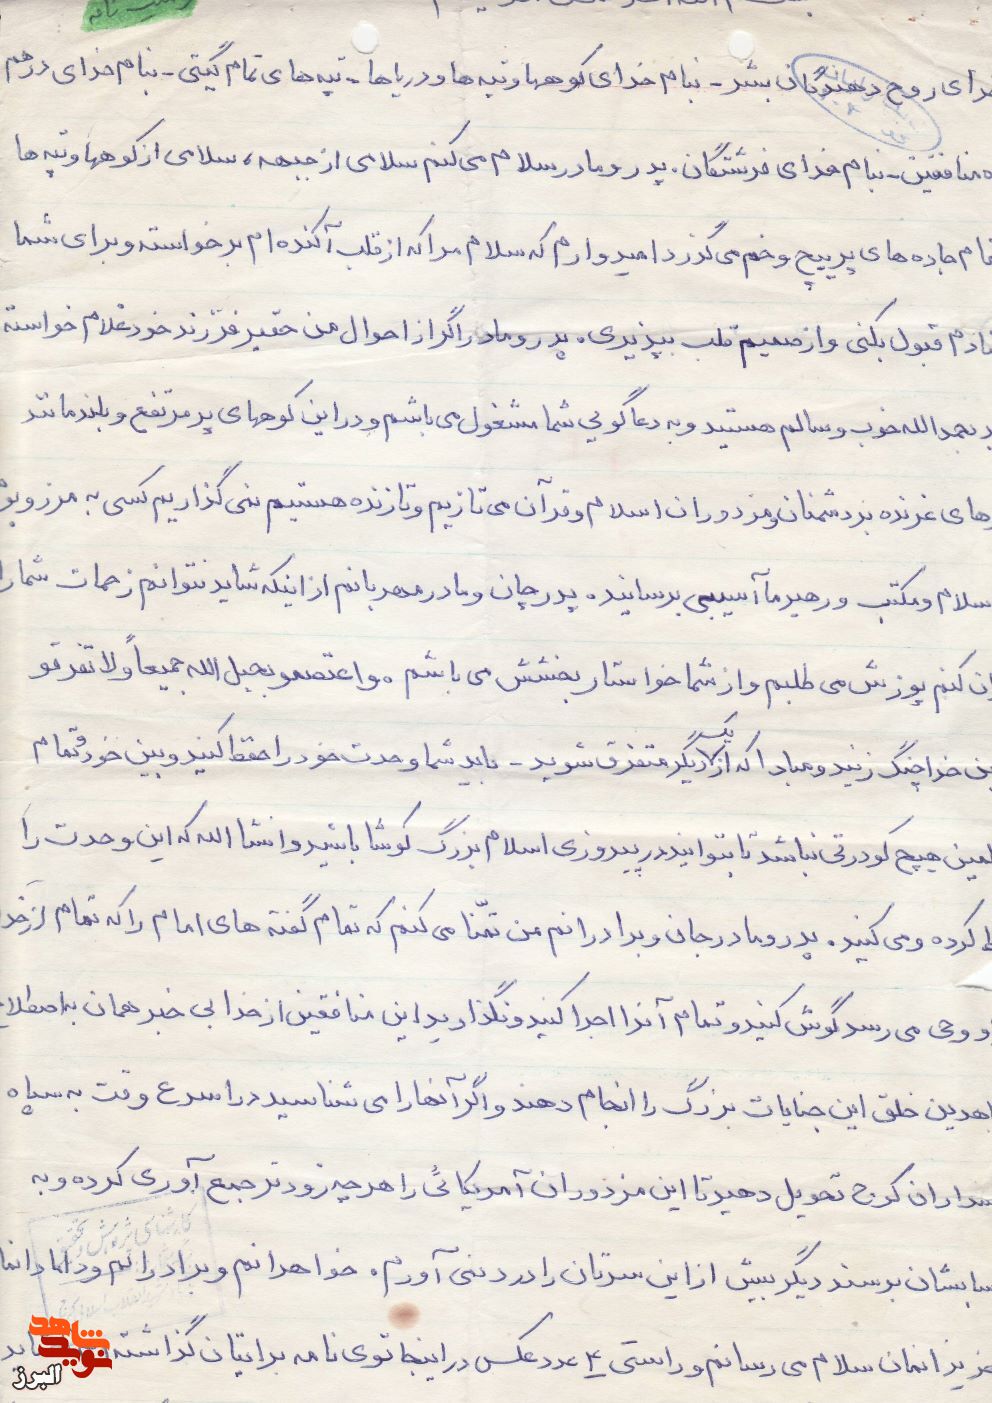 وصیت نامه
خدای روح دهندگان بشر - بنام خدای کوهها و تپه ها و دریاها - تپه های تمام گیتی - بنام خدای درهم
منافقین - بنام خدای فرشتگان. پدر و مادر سلام می کنم سلامی از جبهه، سلامی از کوهها و تپه ها
تمام جاده های پر پیچ و خم می گذرد امیدوارم که سلام مرا که از قلب آکنده ام برخواسته و برای شما
قبول بکنی و از صمیم قلب بپذیری. پدر و مادر اگر از احوال من حقیر فرزند خود غلام خواسته
بحمدالله خوب و سالم هستید و به دعاگویی شما مشغول می باشم و در این کوههای پر مرتفع و بلند مانند
های غرنده بر دشمنان و مزدوران اسلام و قرآن می تازیم و تا زنده هستیم نمی گذاریم کسی به مرز و بوم
اسلام و مکتب و رهبر ما آسیبی برسانند. پدر جان و مادر مهربانم از اینکه شاید نتوانم زحمات شما را
کنم پوزش می طلبم و از شما خواستار بخشش می باشم. واعتصمو بحبل الله جمیعاً ولا تفرقو
خدا چنگ زنید و مبادا که از یکدیگر متفرق شوید - باید شما وحدت خود را حفظ کنید و بین خود و تمام
هیچ کودرتی نباشد تا بتوانید در پیروزی اسلام بزرگ کوشا باشید و انشا الله که این وحدت را
کرده و می کنید. پدر و مادر جان و برادرانم من تمنّا می کنم که تمام گفته های امام را که تمام از خدا
و وحی می رسد گوش کنید و تمام آنرا اجرا کنید و نگذارید این منافقین از خدا بی خبر همان به اصطلاح
مجاهدین خلق این جنایات بزرگ را انجام دهند و اگر آنها را می شناسید در اسرع وقت به سپاه
پاسداران کرج تحویل دهید تا این مزدوران آمریکائی را هر چه زودتر جمع آوری کرده و به
برسند دیگر بیش از این سرتان را درد نمی آورم. خواهرانم و برادرانم و
عزیزانمان سلام می رسانم و راستی ۴ عدد عکس در اینجا توی نامه برایتان گذاشته
شاهد
نوید
البرز